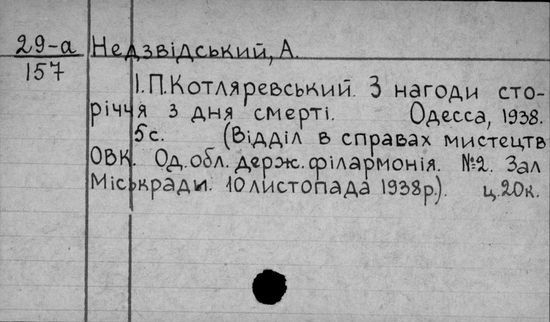 29-а Недзвідський, А.
157
І.П.Котляревський. З нагоди сто-
річчя з дня смерті. Одесса, 1938.
5с. (Відділ в справах мистецтв
ОВК. Од.обл.держ.філармонія. №2. Зал
Міськради. 10 листопада 1938р.). ц.20к.